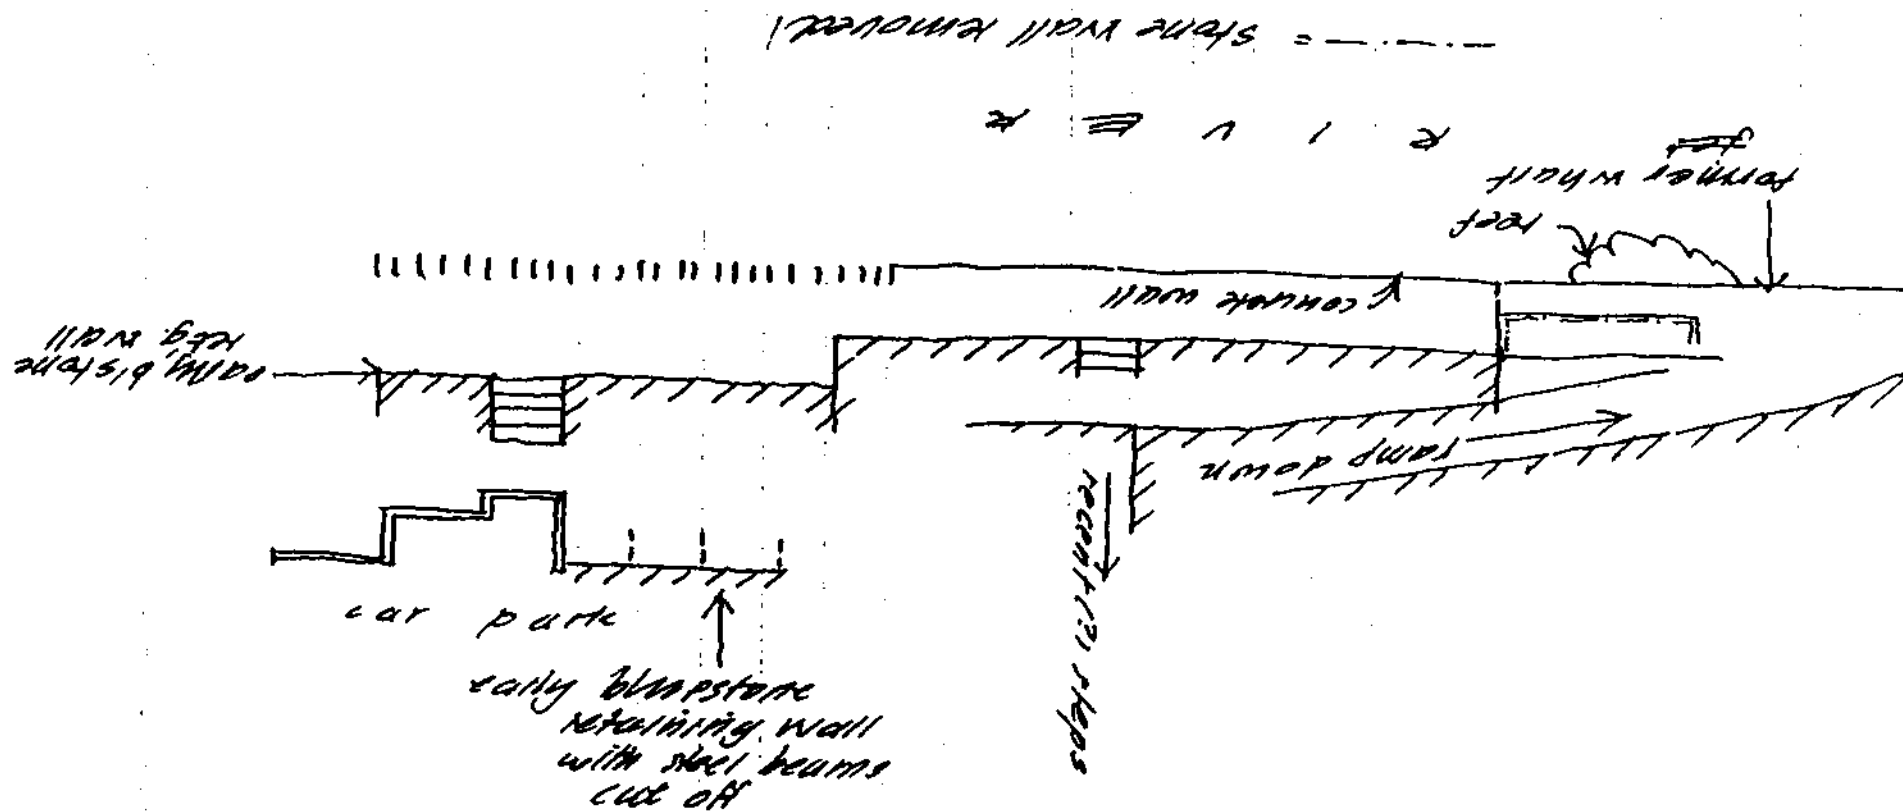 —.—.—.— = stone wall removed
R I V E R
former wharf
reef
concrete wall
early b'stone
retg. wall
ramp down
recent(?) steps
car park
early bluestone
retaining wall
with steel beams
cut off